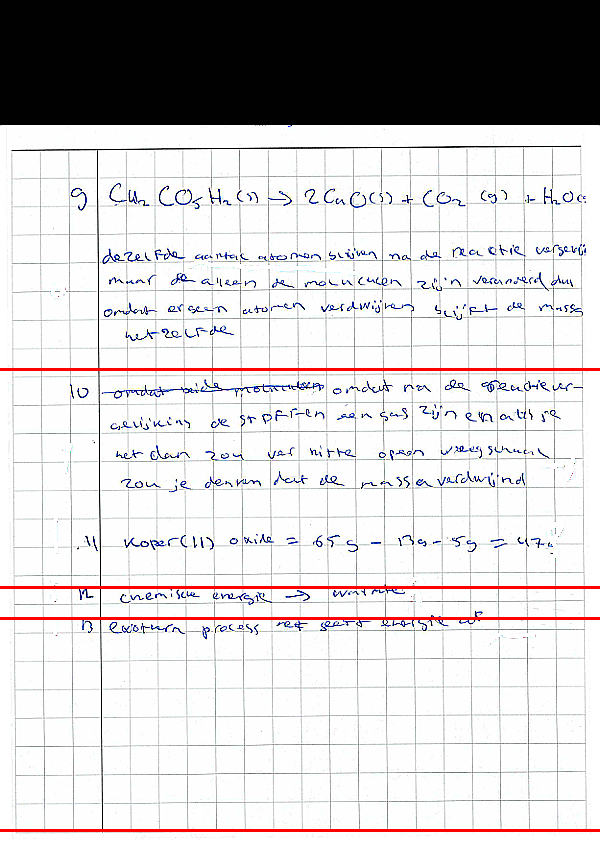 9 Cu₂CO₅H₂(s) → 2CuO(s) + CO₂ (g) + H₂O(
dezelfde aantal atomen blijven na de reactie vergelij
maar de alleen de moluculen zijn veranderd dus
omdat er geen atomen verdwijnen blijft de massa
het zelfde
10 omdat beide moluculen omdat na de reactiever-
gelijking de stoffen een gas zijn en als je
het dan zou verhitte op een weegschaal
zou je denken dat de massa verdwijnd
11 koper(II) oxide = 65g - 13g - 5g = 47g
12 chemische energie → warmte
13 exotherm process het geeft energie af